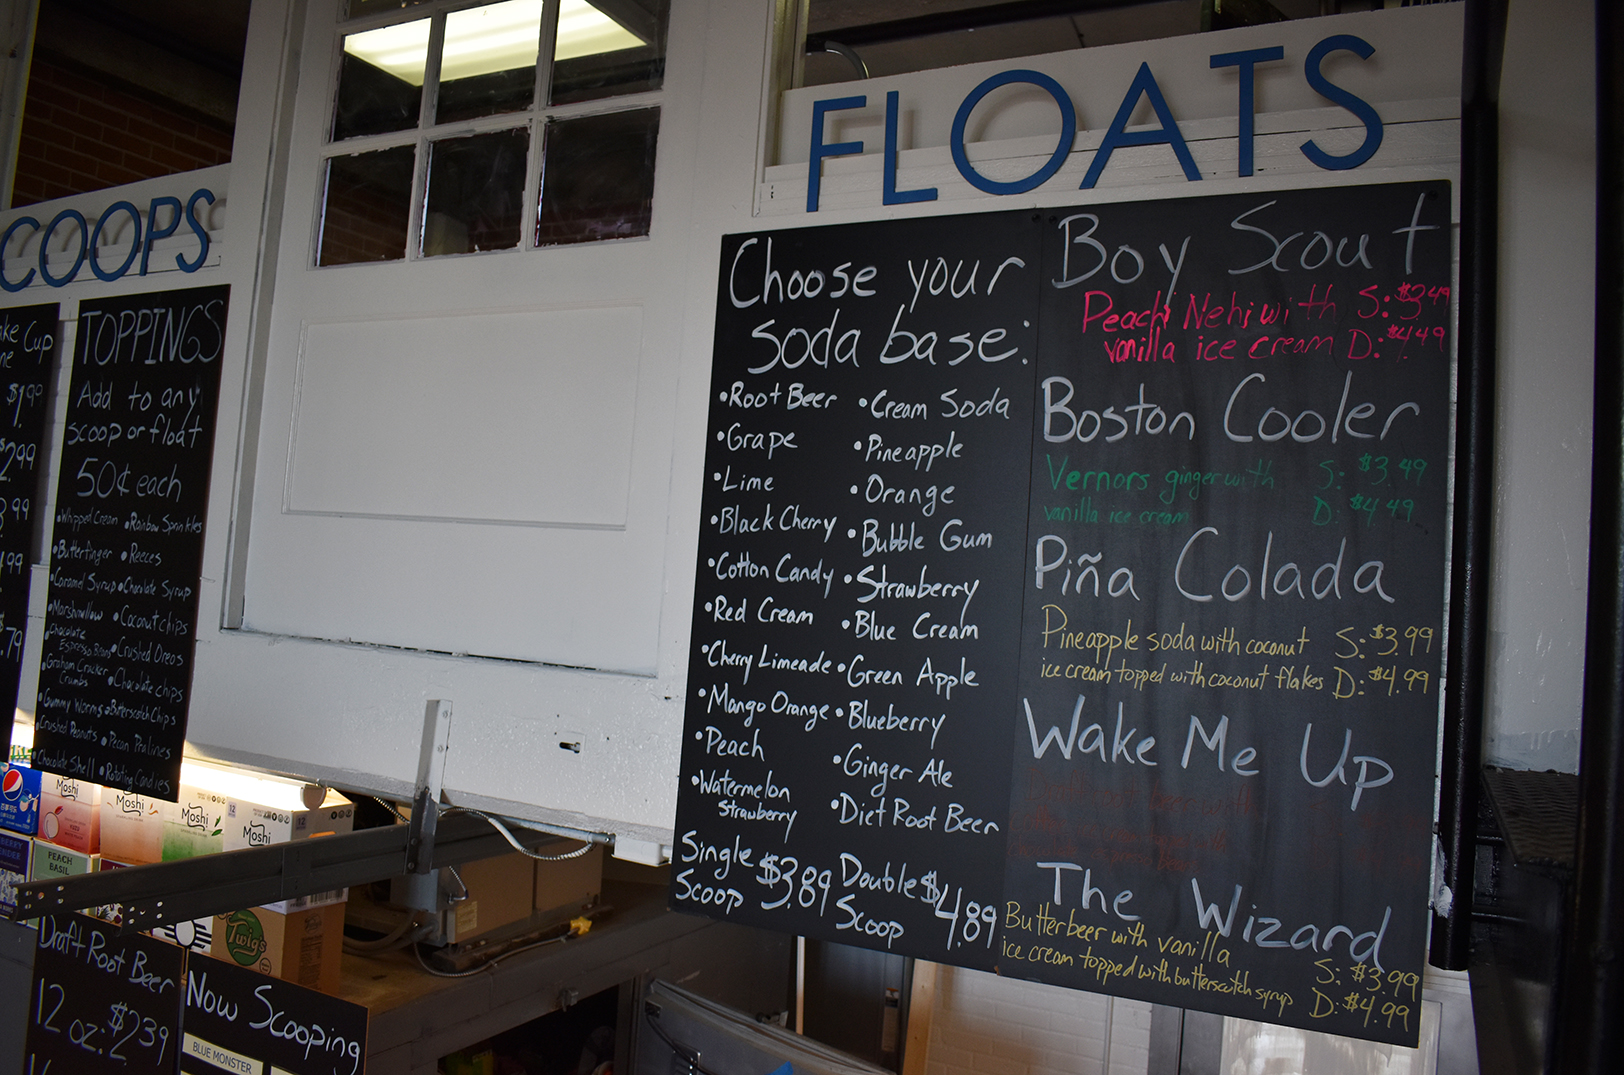 COOPS
ake Cup
ne
$1.99
2.99
3.99
.99
.79
TOPPINGS
Add to any
scoop or float
50¢ each
•Whipped Cream •Rainbow Sprinkles
•Butterfinger •Reeces
•Caramel Syrup •Chocolate Syrup
•Marshmallow •Coconut chips
•Chocolate Espresso Beans •Crushed Oreos
•Graham Cracker Crumbs •Chocolate chips
•Gummy Worms •Butterscotch Chips
•Crushed Peanuts •Pecan Pralines
•Chocolate Shell •Rotating Candies
FLOATS
Choose your
soda base:
•Root Beer •Cream Soda
•Grape •Pineapple
•Lime •Orange
•Black Cherry •Bubble Gum
•Cotton Candy •Strawberry
•Red Cream •Blue Cream
•Cherry Limeade •Green Apple
•Mango Orange •Blueberry
•Peach •Ginger Ale
•Watermelon Strawberry •Diet Root Beer
Single Scoop $3.89 Double Scoop $4.89
Boy Scout
Peach Nehi with S: $3.49
vanilla ice cream D: $4.49
Boston Cooler
Vernors ginger with S: $3.49
vanilla ice cream D: $4.49
Piña Colada
Pineapple soda with coconut S: $3.99
ice cream topped with coconut flakes D: $4.99
Wake Me Up
The Wizard
Butterbeer with vanilla S: $3.99
ice cream topped with butterscotch syrup D: $4.99
pepsi
Moshi
Moshi
Moshi
Moshi
12
12
PEACH
BASIL
Twig's
Draft Root Beer
12 oz: $2.39
Now Scooping
BLUE MONSTER